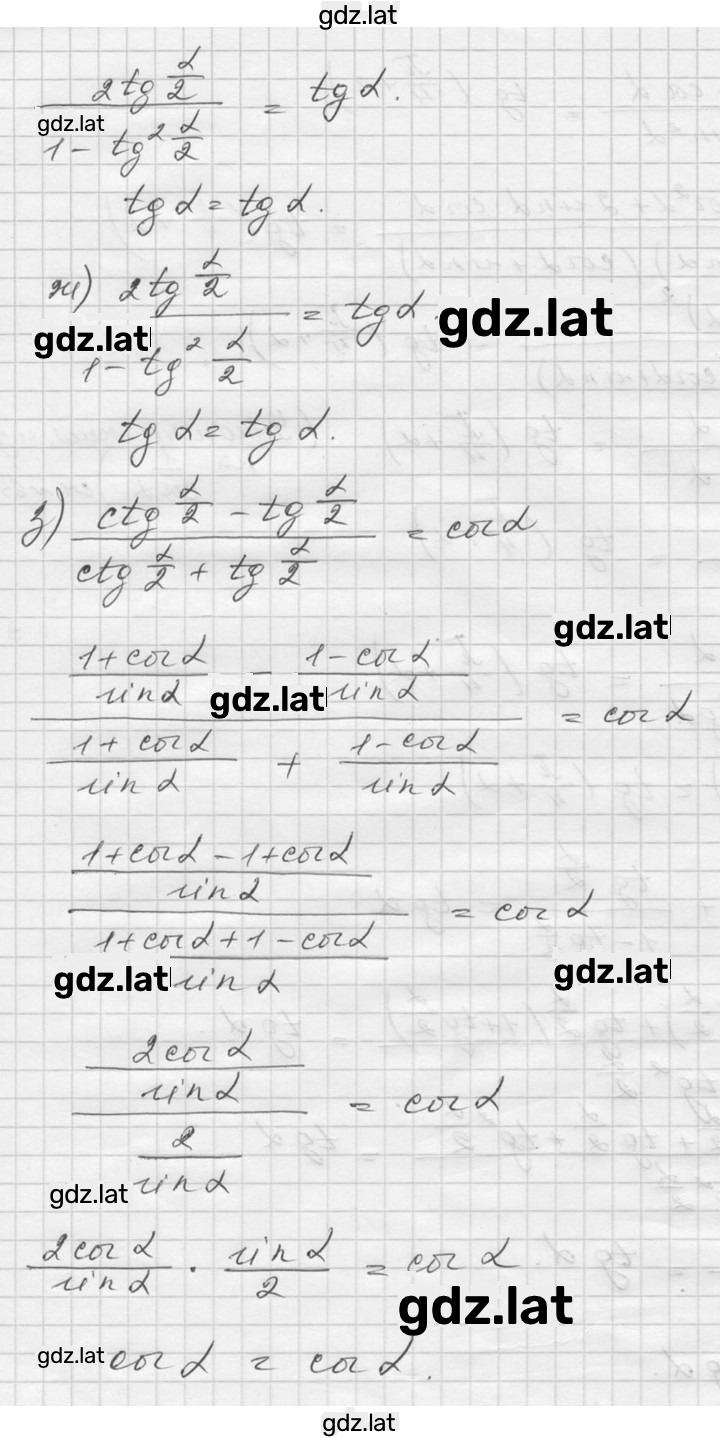 gdz.lat
2tg α/2 / 1 - tg² α/2 = tg α.
gdz.lat
tg α = tg α.
ж) 2tg α/2 / 1 - tg² α/2 = tg α.
gdz.lat
gdz.lat
tg α = tg α.
з) ctg α/2 - tg α/2 / ctg α/2 + tg α/2 = cos α
gdz.lat
1 + cos α / sin α - 1 - cos α / sin α
gdz.lat
= cos α
1 + cos α / sin α + 1 - cos α / sin α
1 + cos α - 1 + cos α / sin α
= cos α
1 + cos α + 1 - cos α / sin α
gdz.lat
gdz.lat
2 cos α / sin α
= cos α
2 / sin α
gdz.lat
2 cos α / sin α · sin α / 2 = cos α
gdz.lat
gdz.lat
cos α = cos α.
gdz.lat